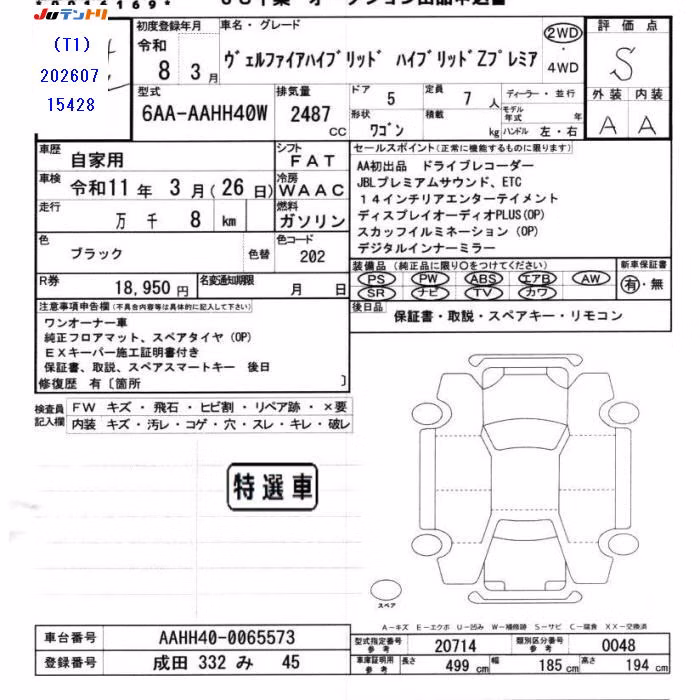 JUテントリ
(T1)
202607
15428
初度登録年月
令和
8 3月
車名・グレード
ヴェルファイアハイブリッド ハイブリッドZプレミア
2WD
・
4WD
評価点
S
外装 内装
A A
型式
6AA-AAHH40W
排気量
2487
CC
ドア
5
定員
7 人
形状
ワゴン
積載
kg
ディーラー・並行
モデル年式 年
ハンドル 左・右
車歴
自家用
シフト
FAT
車検
令和11年 3月(26日)
冷房
WAAC
走行
万 千 8 km
燃料
ガソリン
色
ブラック
色替
色コード
202
R券
18,950円
名変通知期限
月 日
セールスポイント(正常に機能するものに限ります)
AA初出品 ドライブレコーダー
JBLプレミアムサウンド、ETC
14インチリアエンターテイメント
ディスプレイオーディオPLUS(OP)
スカッフイルミネーション(OP)
デジタルインナーミラー
装備品(純正品に限り○をつけてください)
PS PW ABS エアB AW
SR ナビ TV カワ
新車保証書
有・無
後日品
保証書・取説・スペアキー・リモコン
注意事項申告欄(不具合内容等は具体的に記入して下さい)
ワンオーナー車
純正フロアマット、スペアタイヤ(OP)
EXキーパー施工証明書付き
保証書、取説、スペアスマートキー 後日
修復歴 有〔箇所 〕
検査員記入欄
FW キズ・飛石・ヒビ割・リペア跡・×要
内装 キズ・汚レ・コゲ・穴・スレ・キレ・破レ
特選車
スペア
A−キズ E−エクボ U−凹み W−補修跡 S−サビ C−腐食 XX−交換済
車台番号
AAHH40-0065573
登録番号
成田 332 み 45
型式指定番号参考
20714
類別区分番号参考
0048
車庫証明用参考
長さ 499 cm
幅 185 cm
高さ 194 cm